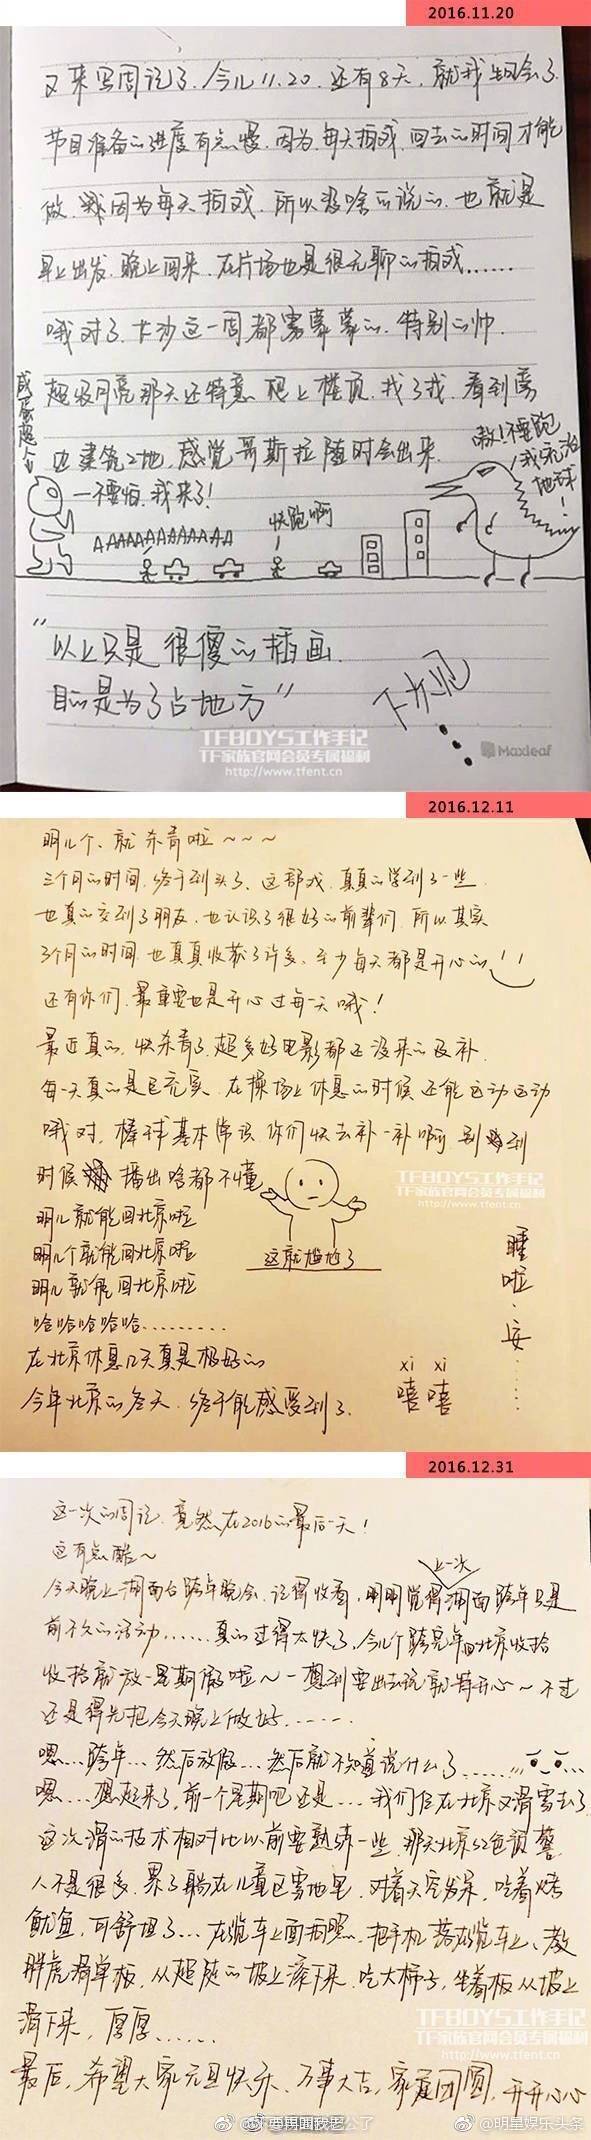 2016.11.20
又来写周记了.今儿11.20.还有8天,就我生日会了.
节目准备的进度有点慢.因为每天拍戏.回去的时间才能
做.因为每天拍戏.所以没啥可说的.也就是
早上出发.晚上回来.在片场也是很无聊的拍戏......
哦对了.长沙这一周都雾蒙蒙的.特别的帅.
超级月亮那天还特意爬上楼顶.找了找.看到旁
边建筑工地.感觉哥斯拉随时会出来.
咸蛋超人
一不要怕.我来了!
AAAAAAAAAAAAA
快跑啊
嗷!不要跑
我统治
地球!
"以上只是很傻的插画.
目的是为了占地方"
下次见
TFBOYS工作手记
TF家族官网会员专属福利
http://www.tfent.cn
Maxleaf
2016.12.11
明儿个、就杀青啦~~~
三个月的时间.终于到头了.这部戏.真真的学到了一些.
也真的交到了朋友.也认识了很好的前辈们.所以其实
3个月的时间.也真真收获了许多.至少每天都是开心的
还有你们.最重要也是开心过每一天哦!
最近真的.快杀青了.超多好电影都还没来的及补.
每一天真的是巨充实.在操场上休息的时候还能运动运动
哦对.棒球基本常识你们快去补一补啊 别到
时候播出啥都不懂
明儿就能回北京啦
明儿个就能回北京啦
明儿就能回北京啦
哈哈哈哈哈.........
在北京休息几天真是极好的
今年北京的冬天.终于能感受到了.
这就尴尬了
TFBOYS工作手记
TF家族官网会员专属福利
http://www.tfent.cn
睡啦.安......
xi xi
嘻嘻
2016.12.31
这一次的周记.竟然在2016的最后一天!
这有点酷~
上一次
今天晚上湖南台跨年晚会.记得收看,明明觉得湖南跨年只是
前不久的活动......真的过得太快了,今儿个跨完年回北京收拾
收拾就放一星期假啦~一想到要出去玩就特开心~不过
还是得先把今天晚上做好......
嗯...跨年...然后放假...然后就不知道说什么了......
嗯...想起来了,前一个星期吧还是...我们在北京又滑雪去了
这次滑的技术相对比以前要熟练一些.那天北京红色预警.
人不是很多.累了躺在儿童区雪地里.对着天空发呆,吃着烤
鱿鱼,可舒坦了...在缆车上面拍照.把手机落在缆车上、教
胖虎滑单板,从超陡的坡上滚下来.吃大柿子,坐着板从坡上
滑下来,厚厚......
最后,希望大家元旦快乐.万事大吉,家庭团圆,开开心心
TFBOYS工作手记
TF家族官网会员专属福利
http://www.tfent.cn
@明星娱乐头条